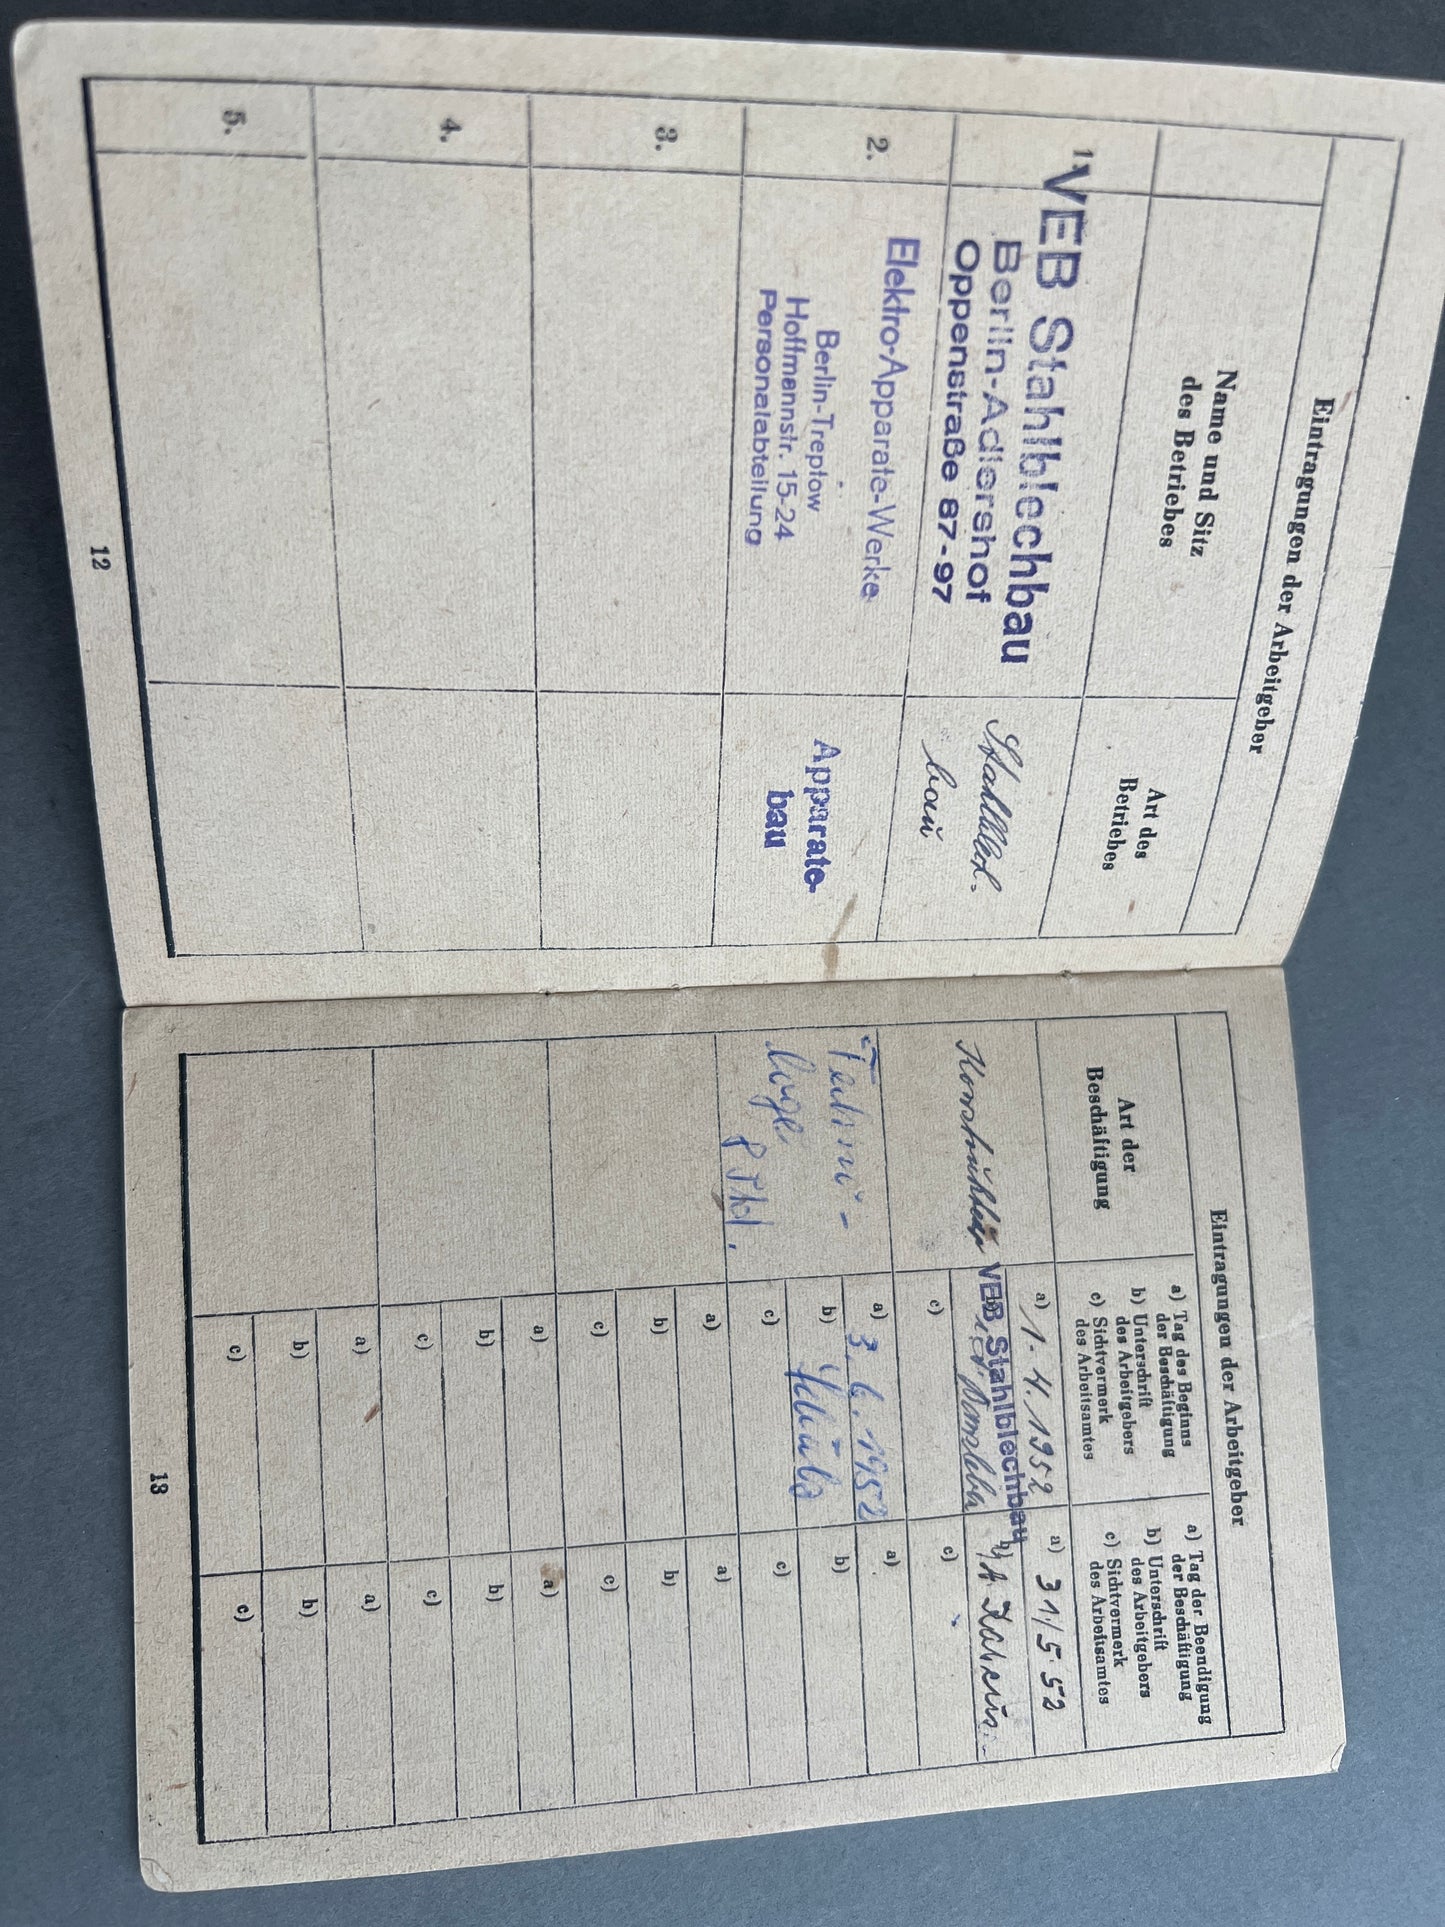 Eintragungen der Arbeitgeber
Name und Sitz
des Betriebes
Art des
Betriebes
1.
VEB Stahlblechbau
Berlin-Adlershof
Oppenstraße 87-97
Stahlblech-
bau
2.
Elektro-Apparate-Werke
Berlin-Treptow
Hoffmannstr. 15-24
Personalabteilung
Apparate-
bau
3.
4.
5.
12
Eintragungen der Arbeitgeber
Art der
Beschäftigung
a) Tag des Beginns
der Beschäftigung
b) Unterschrift
des Arbeitgebers
c) Sichtvermerk
des Arbeitsamtes
a) Tag der Beendigung
der Beschäftigung
b) Unterschrift
des Arbeitgebers
c) Sichtvermerk
des Arbeitsamtes
a) 1.4.1952
VEB Stahlblechbau
c)
a) 31/5.52
b)
c)
8 Std.
a) 3.6.1952
b)
c)
a)
b)
c)
a)
b)
c)
a)
b)
c)
a)
b)
c)
a)
b)
c)
a)
b)
c)
a)
b)
c)
13